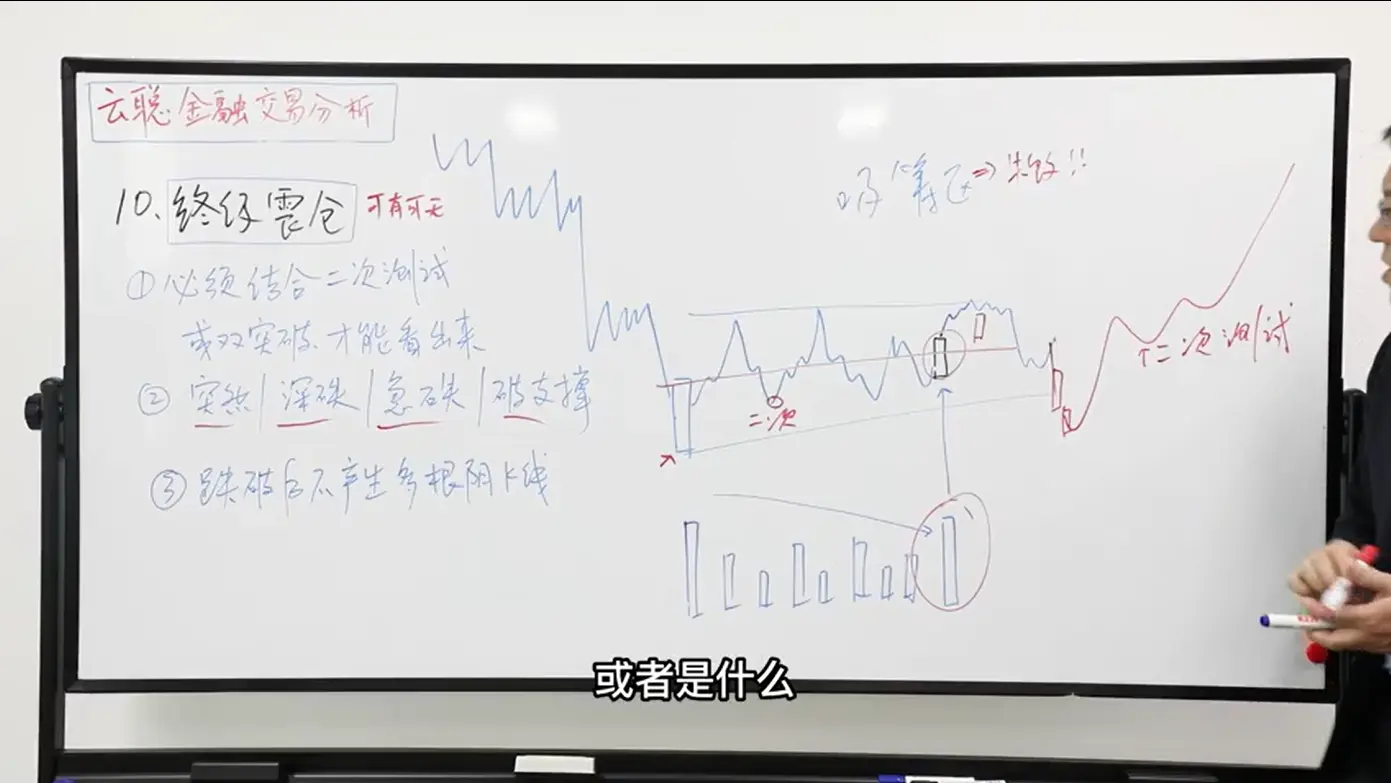 云聪金融交易分析
10.终极震仓 可有可无
①必须结合二次测试
或双突破.才能看出来
②突然/深跌/急跌/破支撑
③跌破后不产生多根阴K线
二次
↑二次测试
或者是什么